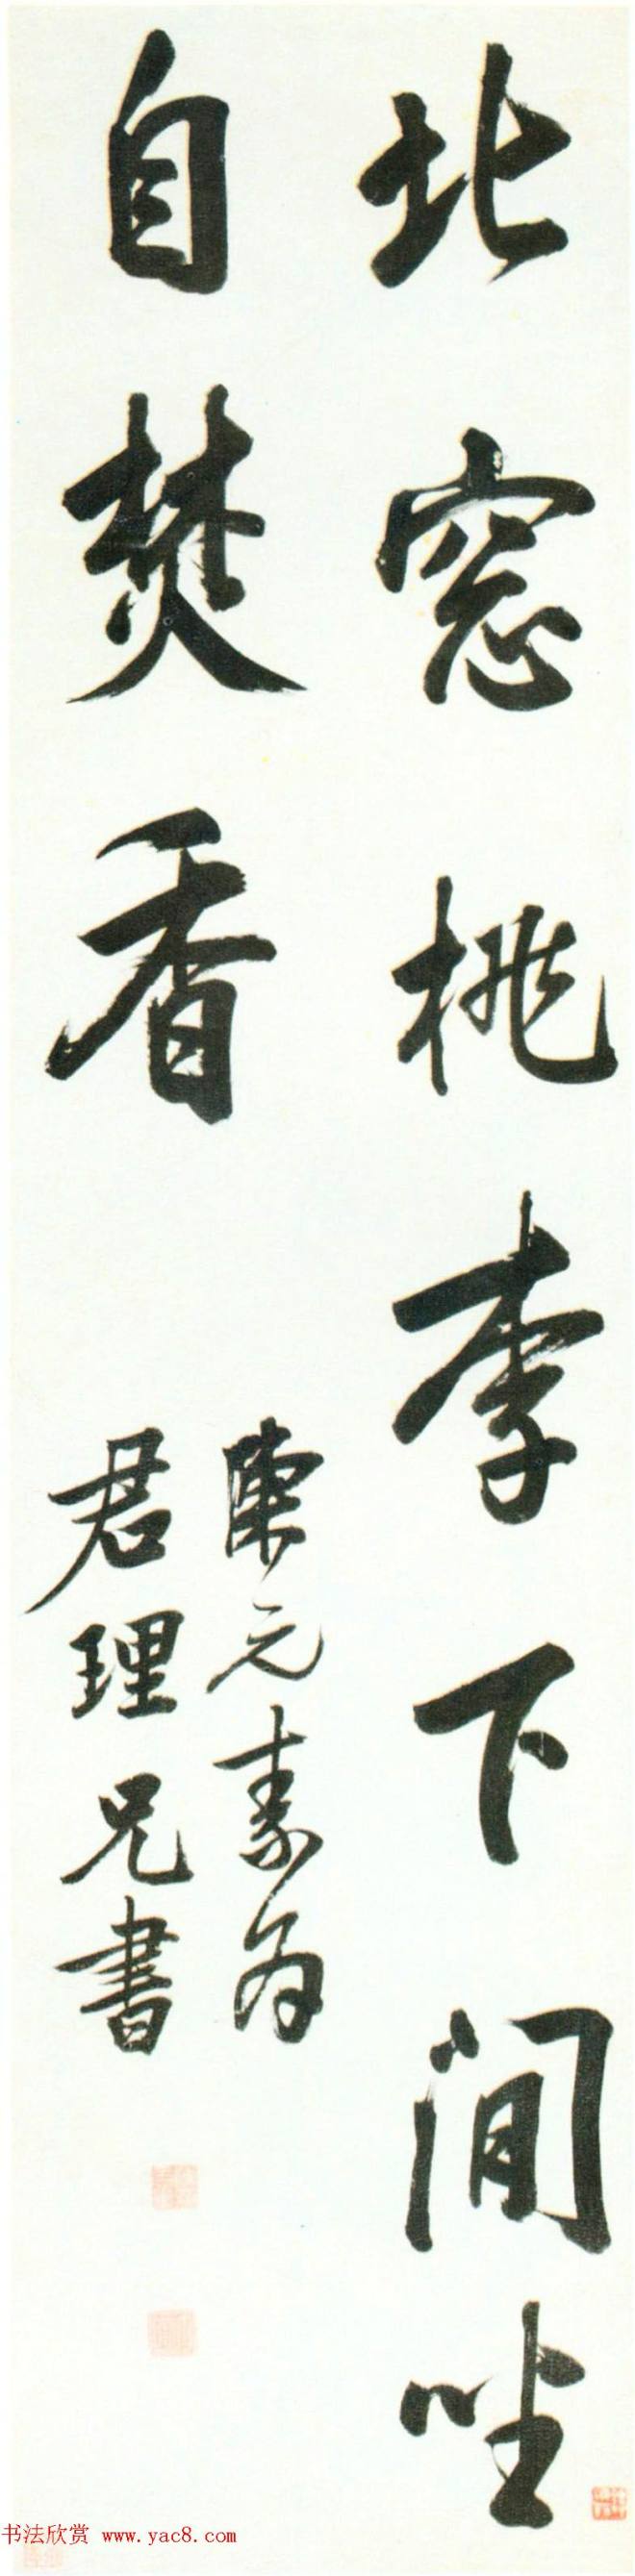 北窓桃李下閒坐
自焚香
陳元素为
君理兄書
书法欣赏 www.yac8.com